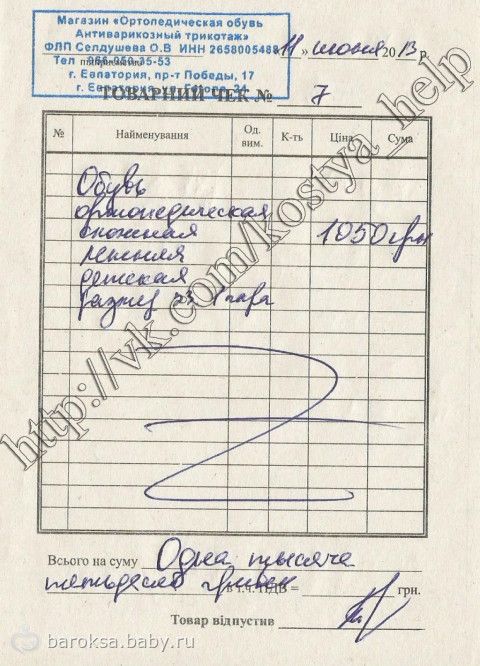 Магазин «Ортопедическая обувь
Антиварикозный трикотаж»
ФЛП Селдушева О.В ИНН 2658005488
Тел 066-050-35-53
г. Евпатория, пр-т Победы, 17
г. Евпатория, ул. 24
11 » июня 2013 р.
ТОВАРНИЙ ЧЕК № 7
№ Найменування Од. вим. К-ть Ціна Сума
Обувь
ортопедическая
сложная 1050 грн
летняя
детская
размер 23 1 пара
Всього на суму Одна тысяча
пятьдесят гривен в т.ч. ПДВ = грн.
Товар відпустив
http://vk.com/kostya_help
baroksa.baby.ru